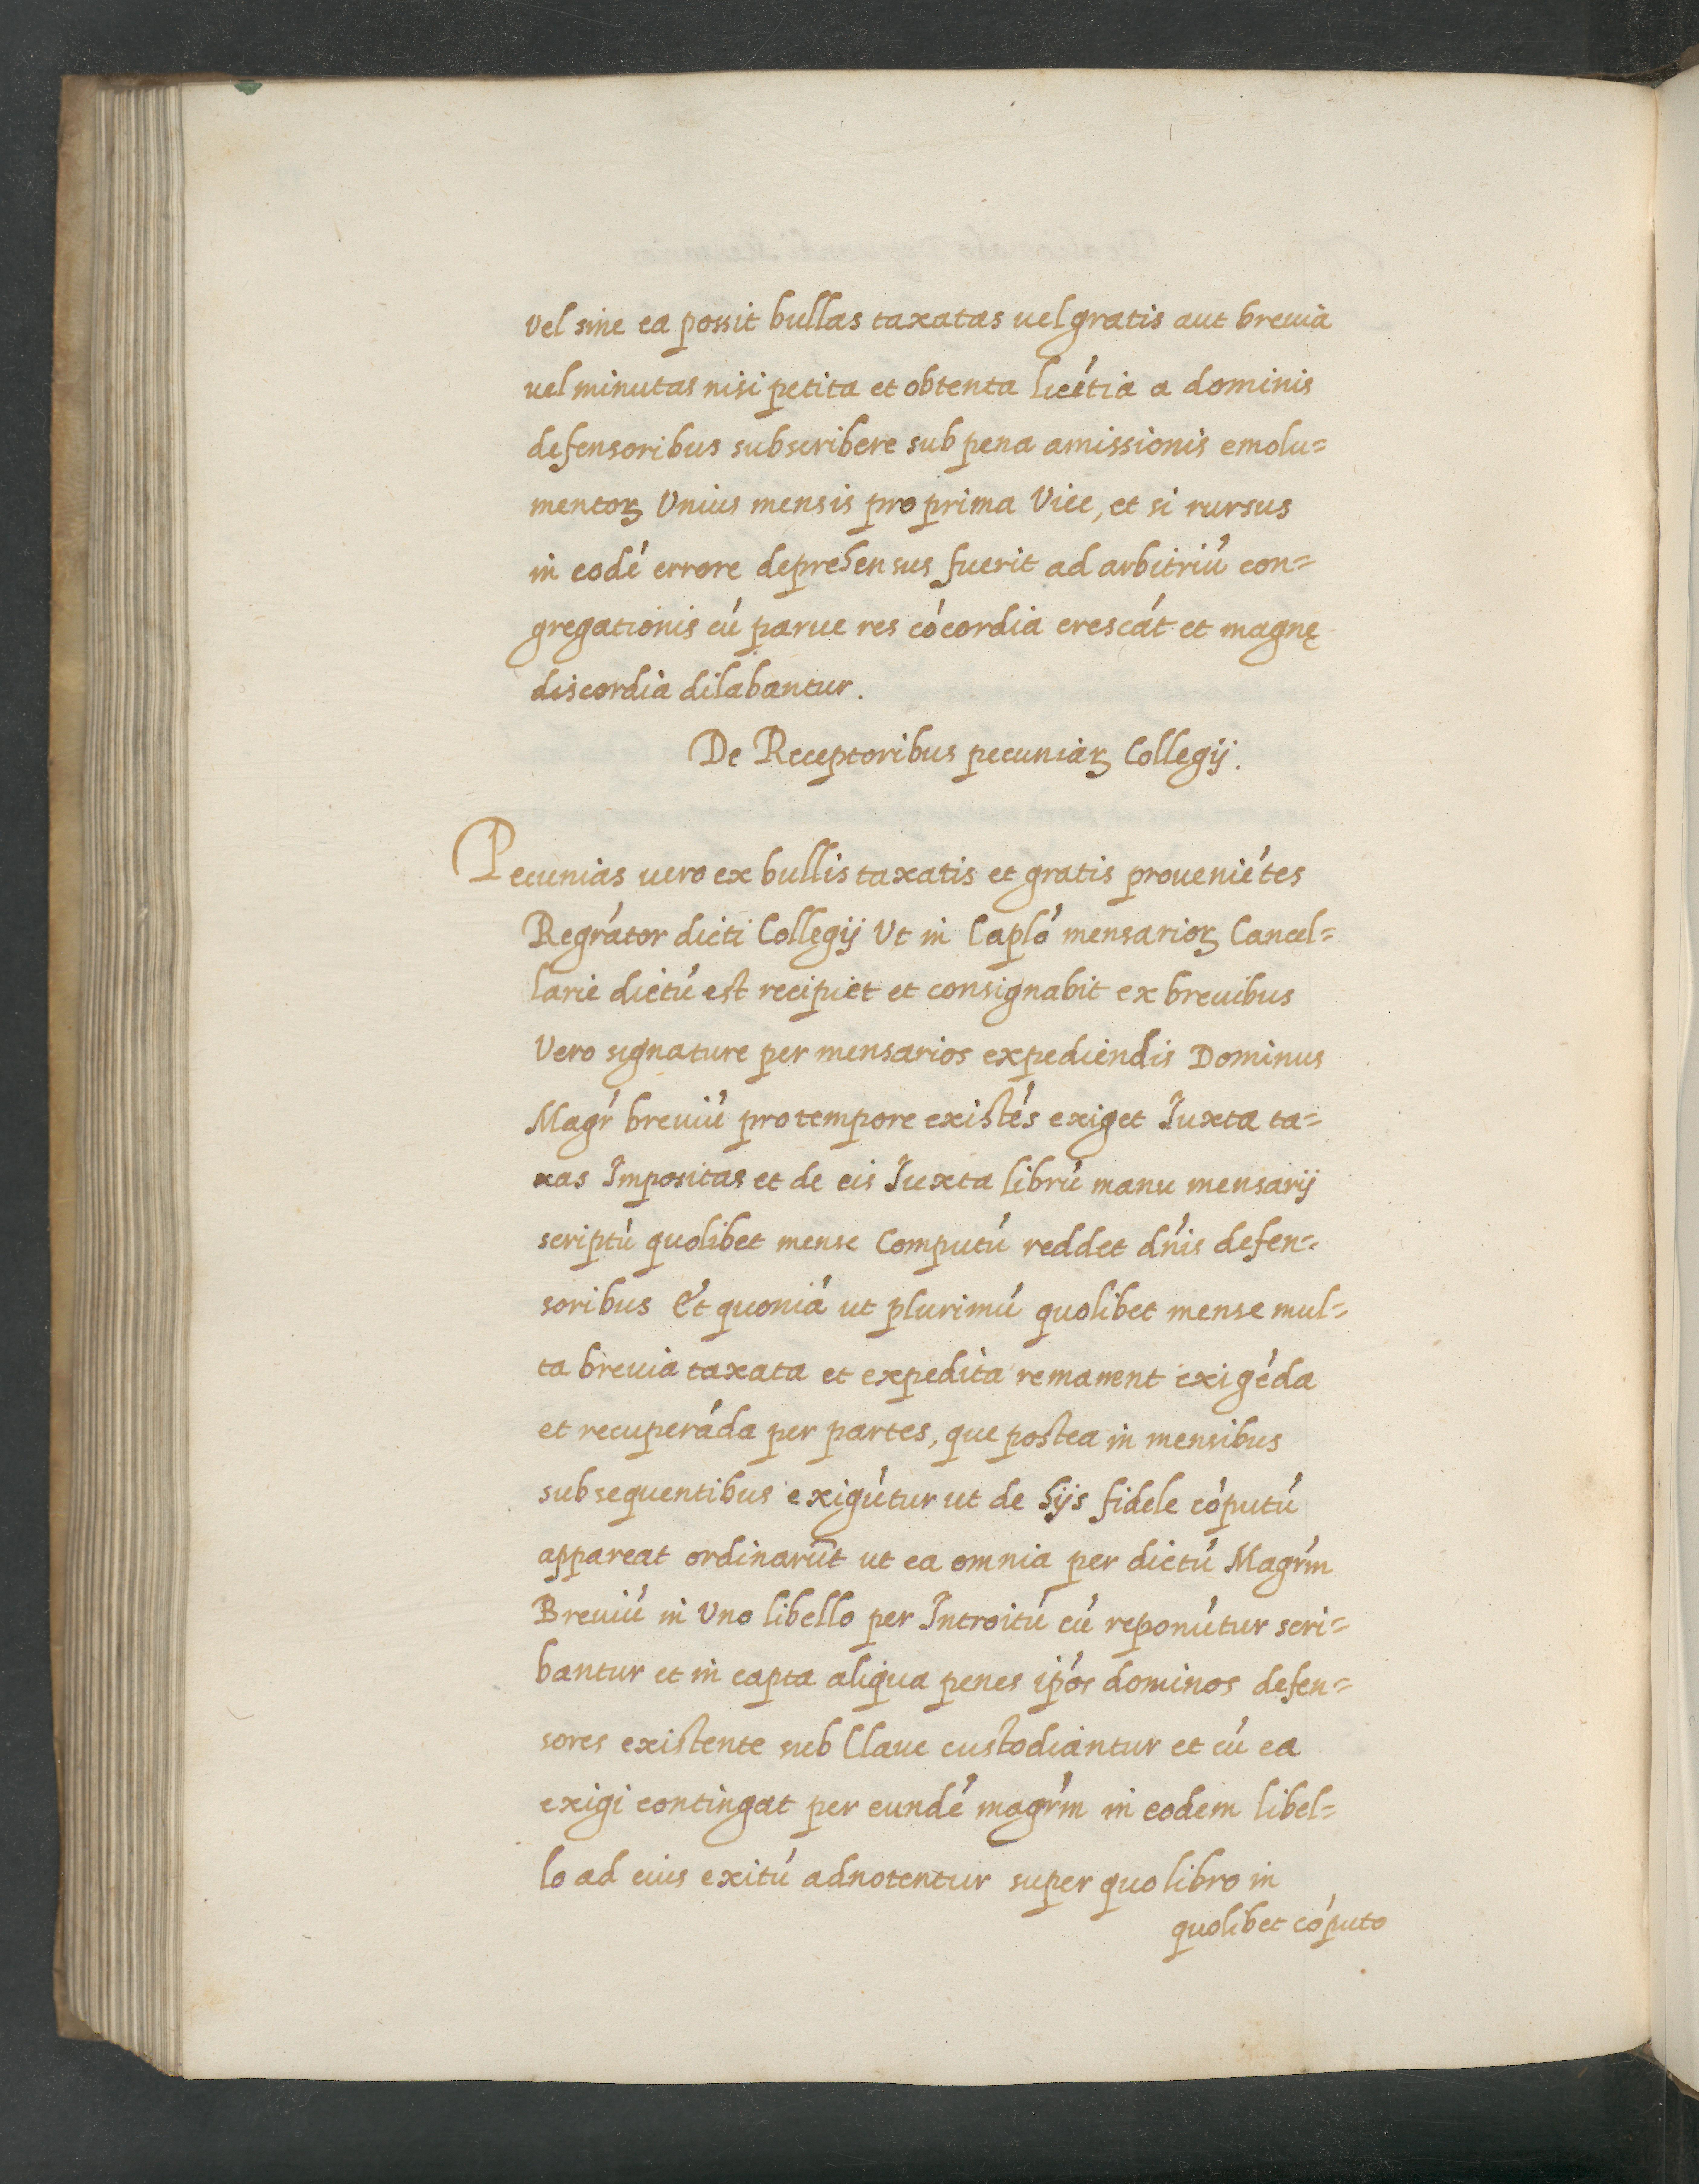 Vel sine ea possit bullas taxatas uel gratis aut breuia
uel minutas nisi petita et obtenta licétia a dominis
defensoribus subscribere sub pena amissionis emolu=
mentoꝝ Vnius mensis pro prima Vice, et si rursus
in eodé errore deprehensus fuerit ad arbitriú con=
gregationis cú parue res cócordia crescát et magnę
discordia dilabantur.
De Receptoribus pecuniaꝝ Collegij.
Pecunias uero ex bullis taxatis et gratis proueniétes
Regrátor dicti Collegij Vt in Capló mensarioꝝ Cancel=
larie dictú est recipiet et consignabit ex breuibus
Vero signature per mensarios expediendis Dominus
Magŕ breuiú pro tempore existés exiget Iuxta ta=
xas Impositas et de eis Iuxta librú manu mensarij
scriptú quolibet mense Computú reddet dńis defen=
soribus Et quoniá ut plurimú quolibet mense mul=
ta breuia taxata et expedita remanent exigéda
et recuperáda per partes, que postea in mensibus
subsequentibus exigútur ut de hijs fidele cóputú
appareat ordinarūt ut ea omnia per dictú Magŕm
Breuiú in Vno libello per Introitú cú reponútur scri=
bantur et in capta aliqua penes ipós dominos defen=
sores existente sub Claue custodiantur et cú ea
exigi contingat per eundé magŕm in eodem libel=
lo ad eius exitú adnotentur super quo libro in
quolibet cóputo